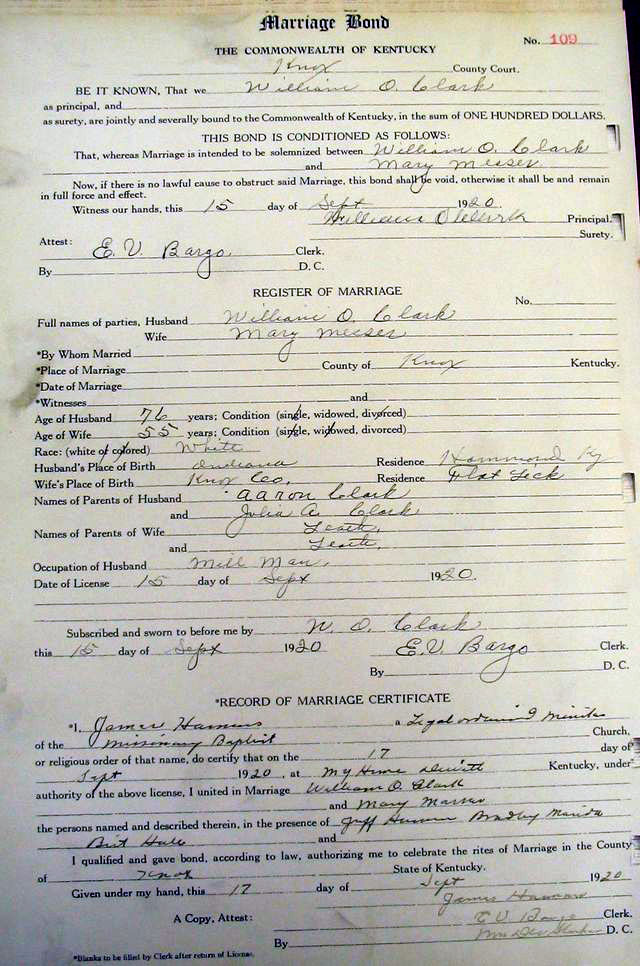 Marriage Bond
No. 109
THE COMMONWEALTH OF KENTUCKY
Knox County Court.
BE IT KNOWN, That we William O. Clark
as principal, and
as surety, are jointly and severally bound to the Commonwealth of Kentucky, in the sum of ONE HUNDRED DOLLARS.
THIS BOND IS CONDITIONED AS FOLLOWS:
That, whereas Marriage is intended to be solemnized between William O. Clark
and Mary Messer
Now, if there is no lawful cause to obstruct said Marriage, this bond shall be void, otherwise it shall be and remain
in full force and effect.
Witness our hands, this 15 day of Sept 1920.
William O Clark Principal.
Surety.
Attest: E. V. Bargo, Clerk.
By D. C.
REGISTER OF MARRIAGE
No.
Full names of parties, Husband William O. Clark
Wife Mary Messer
*By Whom Married
*Place of Marriage County of Knox Kentucky.
*Date of Marriage
*Witnesses and
Age of Husband 76 years; Condition (single, widowed, divorced)
Age of Wife 55 years; Condition (single, widowed, divorced)
Race: (white or colored) White
Husband's Place of Birth Indiana Residence Hammond Ky
Wife's Place of Birth Knox Co. Residence Flat Lick
Names of Parents of Husband Aaron Clark
and Julia A. Clark
Names of Parents of Wife
and
Occupation of Husband Mill Man,
Date of License 15 day of Sept 1920.
Subscribed and sworn to before me by W. O. Clark
this 15 day of Sept 1920 E. V. Bargo Clerk.
By D. C.
*RECORD OF MARRIAGE CERTIFICATE
*I, James a Legal
of the Missionary Baptist Church,
or religious order of that name, do certify that on the 17 day of
Sept 1920, at My Home Dewitt Kentucky, under
authority of the above license, I united in Marriage William O. Clark
and Mary
the persons named and described therein, in the presence of Jeff Bradley
and
I qualified and gave bond, according to law, authorizing me to celebrate the rites of Marriage in the County
of Knox State of Kentucky.
Given under my hand, this 17 day of Sept 1920
James
A Copy, Attest: E V Bargo Clerk.
By D. C.
*Blanks to be filled by Clerk after return of License.